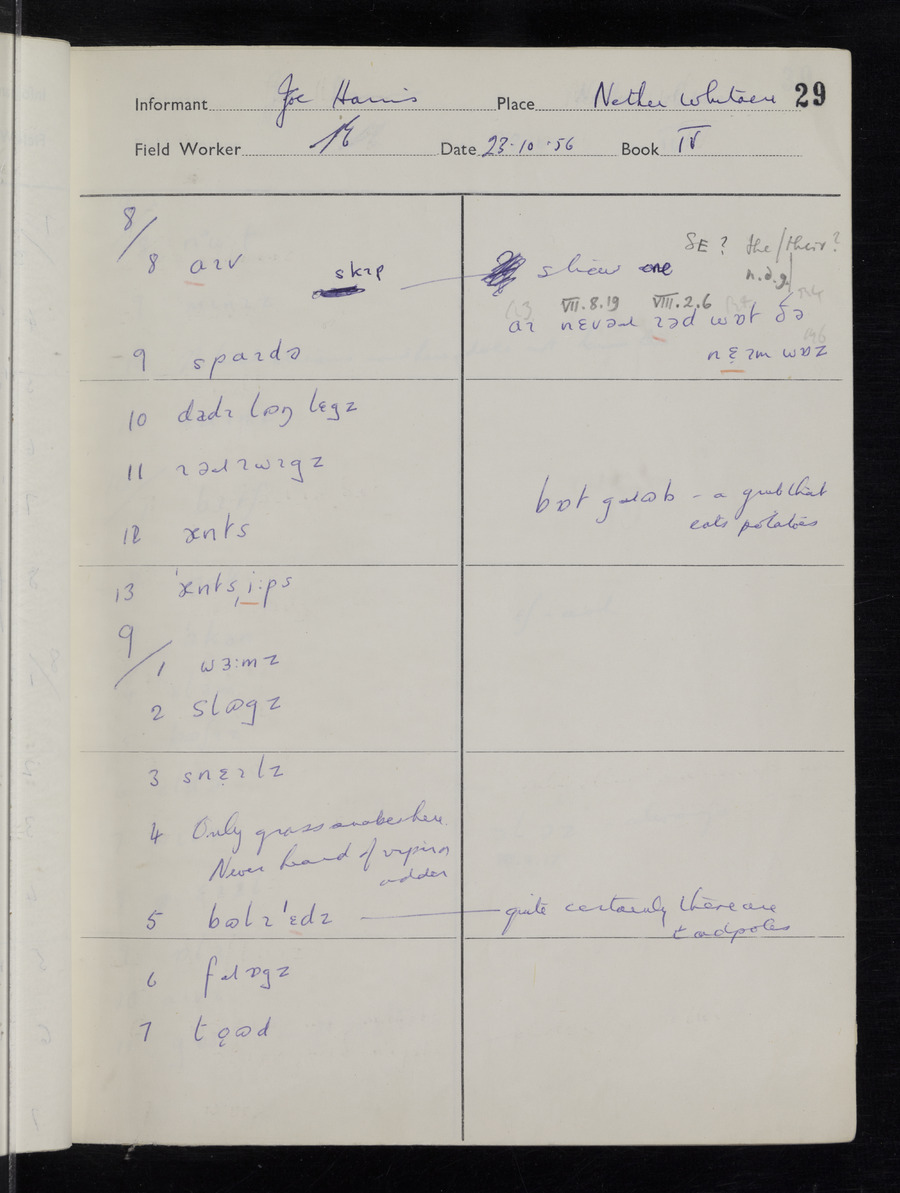 Informant Joe Harris Place Nether Whitacre 29
Field Worker Date 23·10·56 Book IV
8/
8 aɪv
skɪp
shew one
SE? the/their?
n.d.g.
VII.8.19 VIII.2.6
aɪ nɛvəɹ ɪəd wɒt ðə
nɛ̣ɪm wɒz
9 spaɪdə
10 dadɪ lɒŋ lɛgz
11 ɪəɹɪwɪgz
bɒt gɹɷb – a grub that
eats potatoes
12 ænts
13 ˈænts ˌi:ps
9/
1 wɜ:mz
2 slɷgz
3 snɛ̣ɪlz
4 Only grass snakes here.
Never heard of viper or
adder
5 bɷlɪˈɛ̣dz quite certainly there are
tadpoles
6 fɹɒgz
7 tọɷd